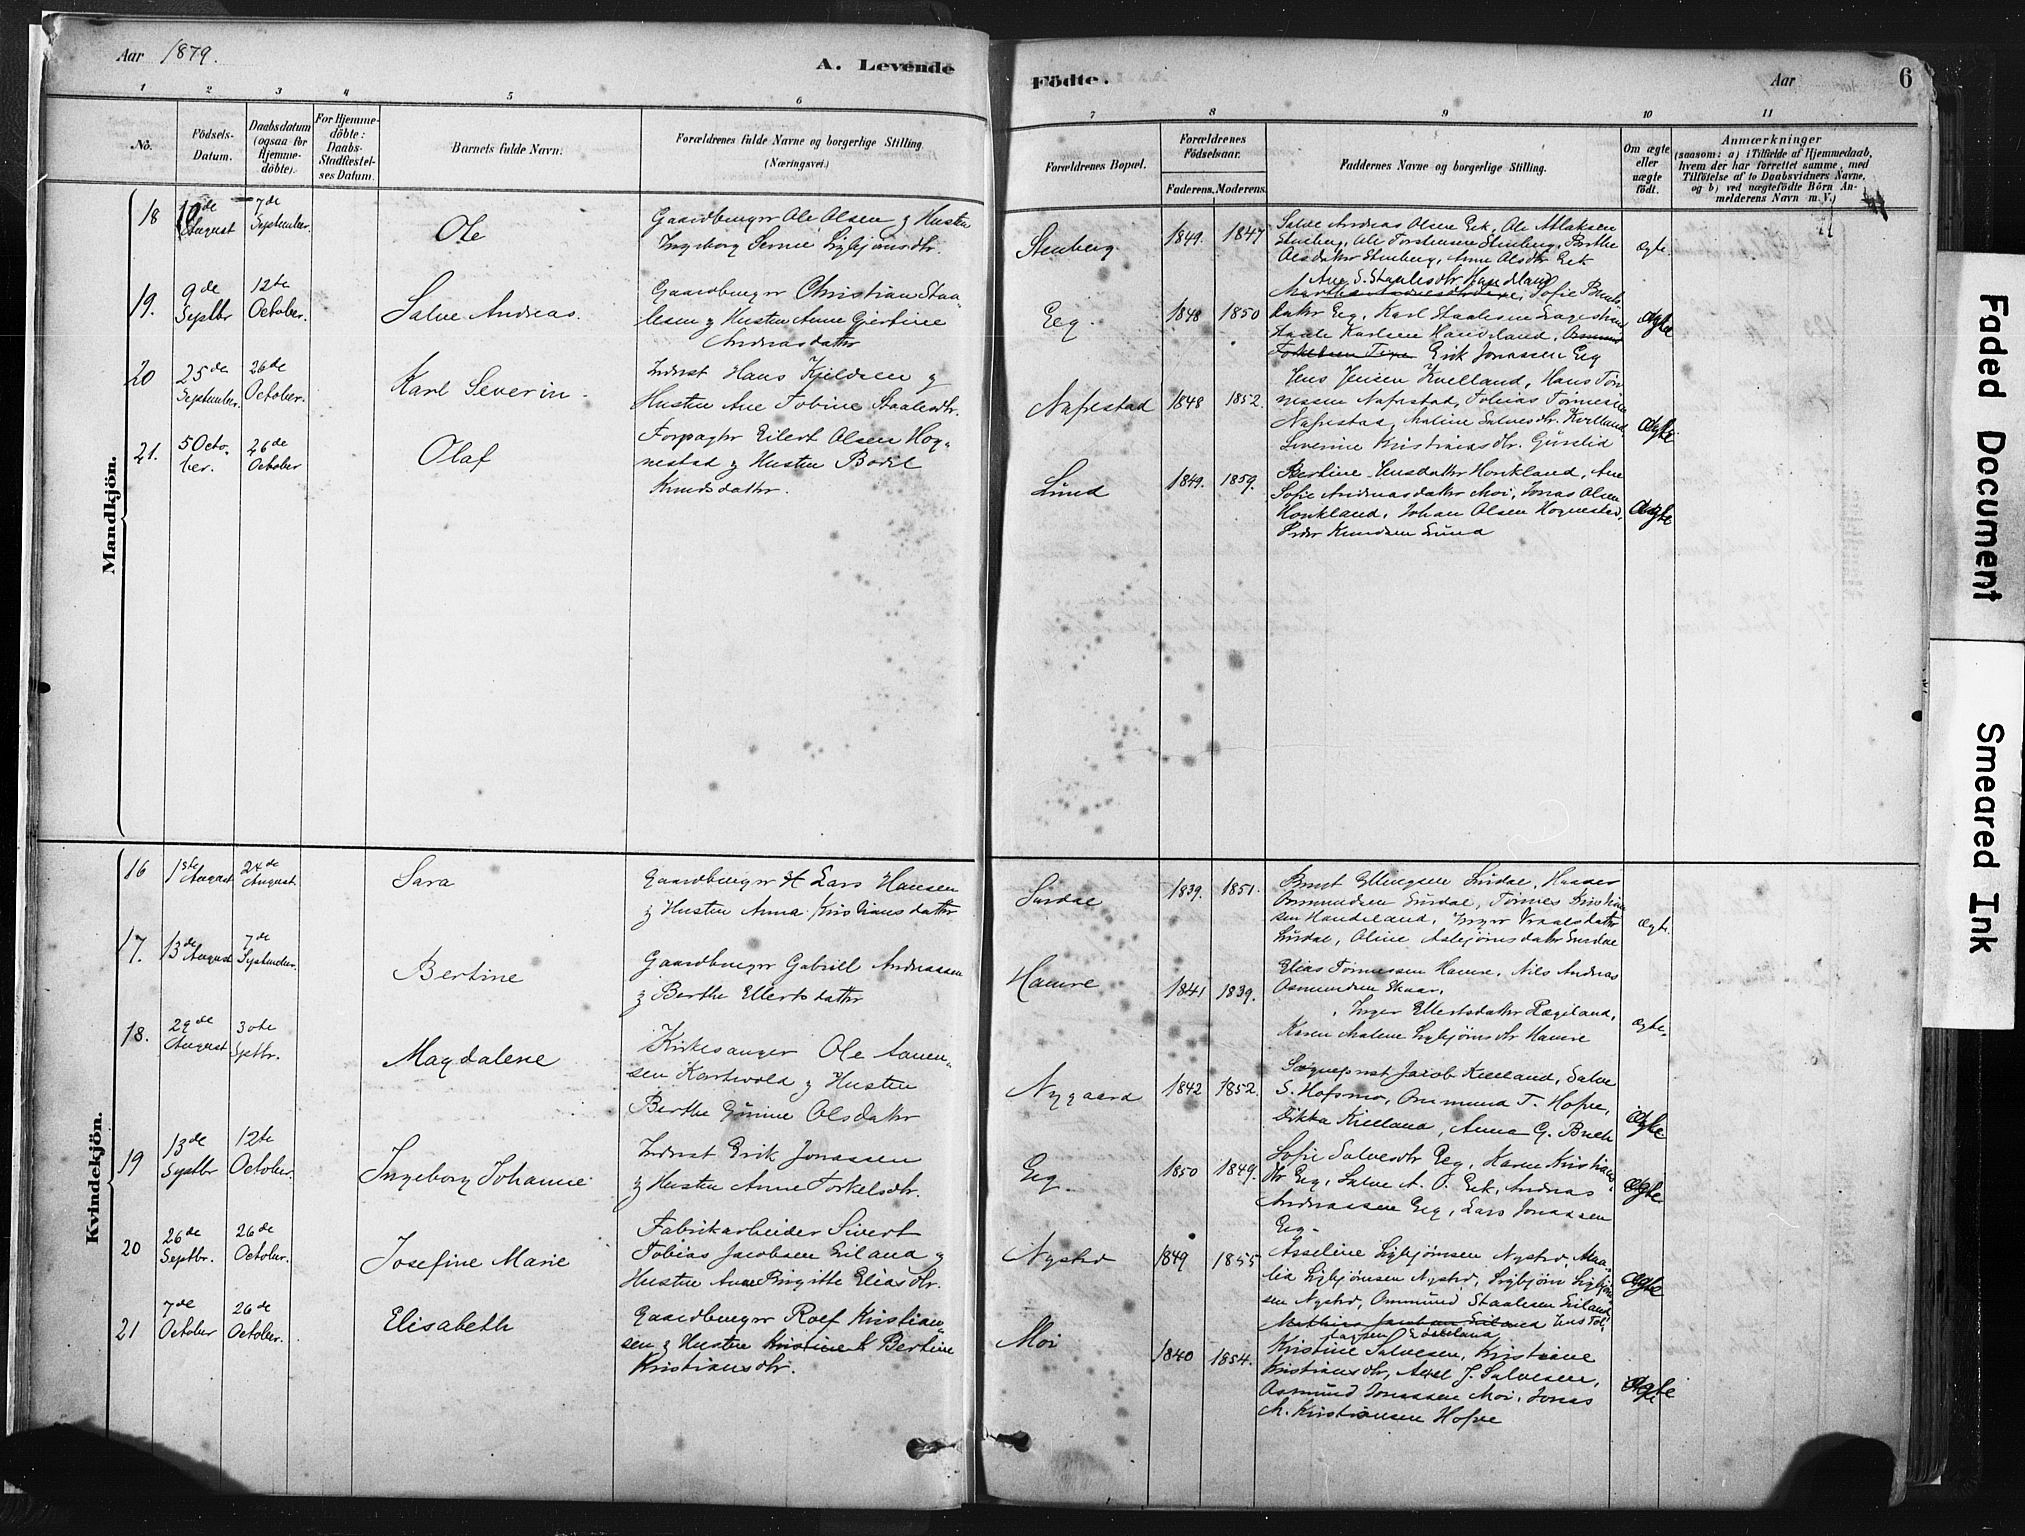 Aar 1879.
A. Levende
Födte.
Aar
6
1 2 3 4 5 6
7 8 9 10 11
No.
Födsels-
Datum.
Daabsdatum
(ogsaa for
Hjemme-
döbte).
For Hjemme-
döbte:
Daabs-
Stadfæstel-
ses Datum.
Barnets fulde Navn.
Forældrenes fulde Navne og borgerlige Stilling.
(Næringsvei.)
Forældrenes Bopæl.
Forældrenes
Födselsaar.
Faderens. Moderens.
Faddernes Navne og borgerlige Stilling.
Om ægte
eller
uægte
födt.
Anmærkninger
(saasom: a) i Tilfælde af Hjemmedaab,
hvem der har forrettet samme, med
Tilföielse af to Daabsvidners Navne,
og b) ved uægtefödte Börn An-
melderens Navn m. V.)
Mandkjön.
18
August
7de
September.
Ole
Gaardbruger Ole Olsen g Husten
Ingeborg Serine Sigbjørnsdtr.
Stenberg
1849. 1847
Salve Andreas Olsen Eek, Ole Atlaksen
Stenberg, Ole Torstensen Stenberg, Berthe
Olsdatter Stenberg, Anne Olsdtr Eek
ægte.
19.
9de
Septbr
12te
October.
Salve Andreas.
Gaardbruger Christian Staa-
lesen g Husten Anne Gjertine
Andreasdattr
Eeg.
1848 1850
Ane S. Staalesdtr Handeland
Sofie Bent-
dattr Eeg, Karl Staalesen
Staale Karlsen Handeland,
Erik Jonassen Eeg
ægte
20
25de
September.
26de
October.
Karl Severin.
Inderst Hans Kjeldsen g
Husten Ane Tobine Staalesdtr.
Nafrestad
1848 1852.
Jens Jensen Kvelland, Hans Tør-
nessen Nafrestad, Tobias Tørnesen
Nafrestad, Maline Salvesdtr. Kvelland,
Severine Kristiansdtr.
ægte.
21.
5 Octo-
ber.
26de
October
Olaf
Forpagtr Eilert Olsen Hog-
nestad g Husten Bodil
Knudsdattr.
Lund
1849. 1859.
Bertine Jensdattr Honkland, Ane
Sofie Andreasdattr Moi, Jonas Olsen
Honkland, Johan Olsen Hognestad,
Peder Knudsen Lund
ægte
Kvindekjön.
16
1ste August
24de
August
Sara
Gaardbruger Lars Hansen
g Husten Anna Kristiansdattr
Surdal
1839. 1851.
Bernt Ellingsen Surdal,
Ommundsen Surdal, Tørnes Kristian-
sen Handeland, Inger
Surdal, Oline Asbjørnsdatr Surdal
ægte.
17.
13de August
7de
September.
Bertine
Gaardbruger Gabriell Andreassen
g Berthe Ellertsdattr
Hamre
1841 1839.
Elias Tørnessen Hamre, Nils Andreas
Osmundsen Skaar,
Inger Ellertsdattr Rægeland,
Karen Malene Sigbjørnsdtr Hamre
ægte.
18.
29de
August
30te
Septbr.
Magdalene
Kirkesanger Ole Aanen-
sen Kartevold g Husten
Berthe Gurine Olsdattr
Nygaard
1842 1852.
Sogneprest Jacob Kielland, Salve
S. Hofsmo, Ommund T. Hofve,
Dikka Kielland, Anna G. Buch
ægte
19
13de
Septbr
12te
October.
Ingeborg Johanne
Inderst Erik Jonassen
g Husten Anne Torkelsdtr.
Eeg
1850 1849.
Sofie Salvesdtr Eeg, Karen Kristians-
dtr Eeg, Salve A. O. Eek, Andreas
Andreassen Eeg, Lars Jonassen
Eeg.
ægte
20
26de
Septbr.
26de
October.
Josefine Marie
Fabrikarbeider Sivert
Tobias Jacobsen Eiland g
Husten Ane Birgitte Eliasdtr.
Nysted
1849 1855
Asseline Sigbjørnsen Nysted, Ama-
lia Sigbjørnsen Nysted, Sigbjørn Sigbjørn-
sen Nysted, Ommund Staalesen Eiland
Jens Tol-
lagsen
ægte
21
7de
October
26de
October.
Elisabeth
Gaardbruger Roef Kristian-
sen g Husten Bertine
Kristiansdtr.
Moi
1840 1854.
Kristine Salvesen, Kristiane
Kristiansdtr, Axel J. Salvesen,
Osmund Jonassen Moi, Jonas
M. Kristiansen Hofve
ægte
Faded Document
Smeared Ink